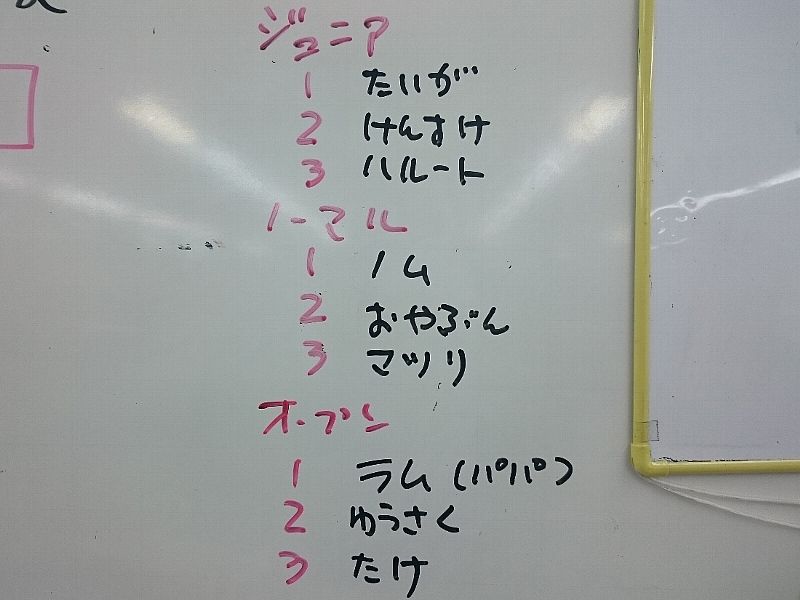 ジュニア
1 たいが
2 けんすけ
3 ハルート
ノーマル
1 ノム
2 おやぶん
3 マツリ
オープン
1 ラム(パパ)
2 ゆうさく
3 たけ